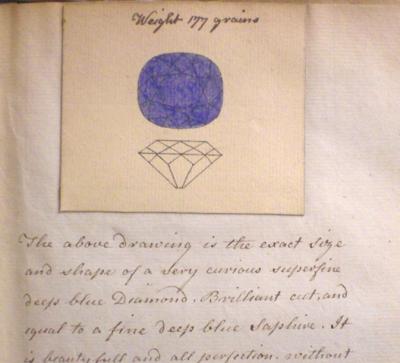 Weight 177 grains
The above drawing is the exact size
and shape of a very curious superfine
deep blue Diamond. Brilliant cut, and
equal to a fine deep blue Saphire. It
is beauty full and all perfection. without